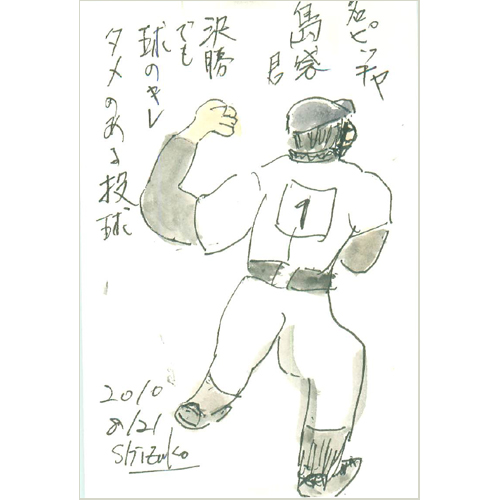 名ピッチャ
島袋君
決勝
でも
球のキレ
タメのある投球
1
2010
8/21
Shizuko